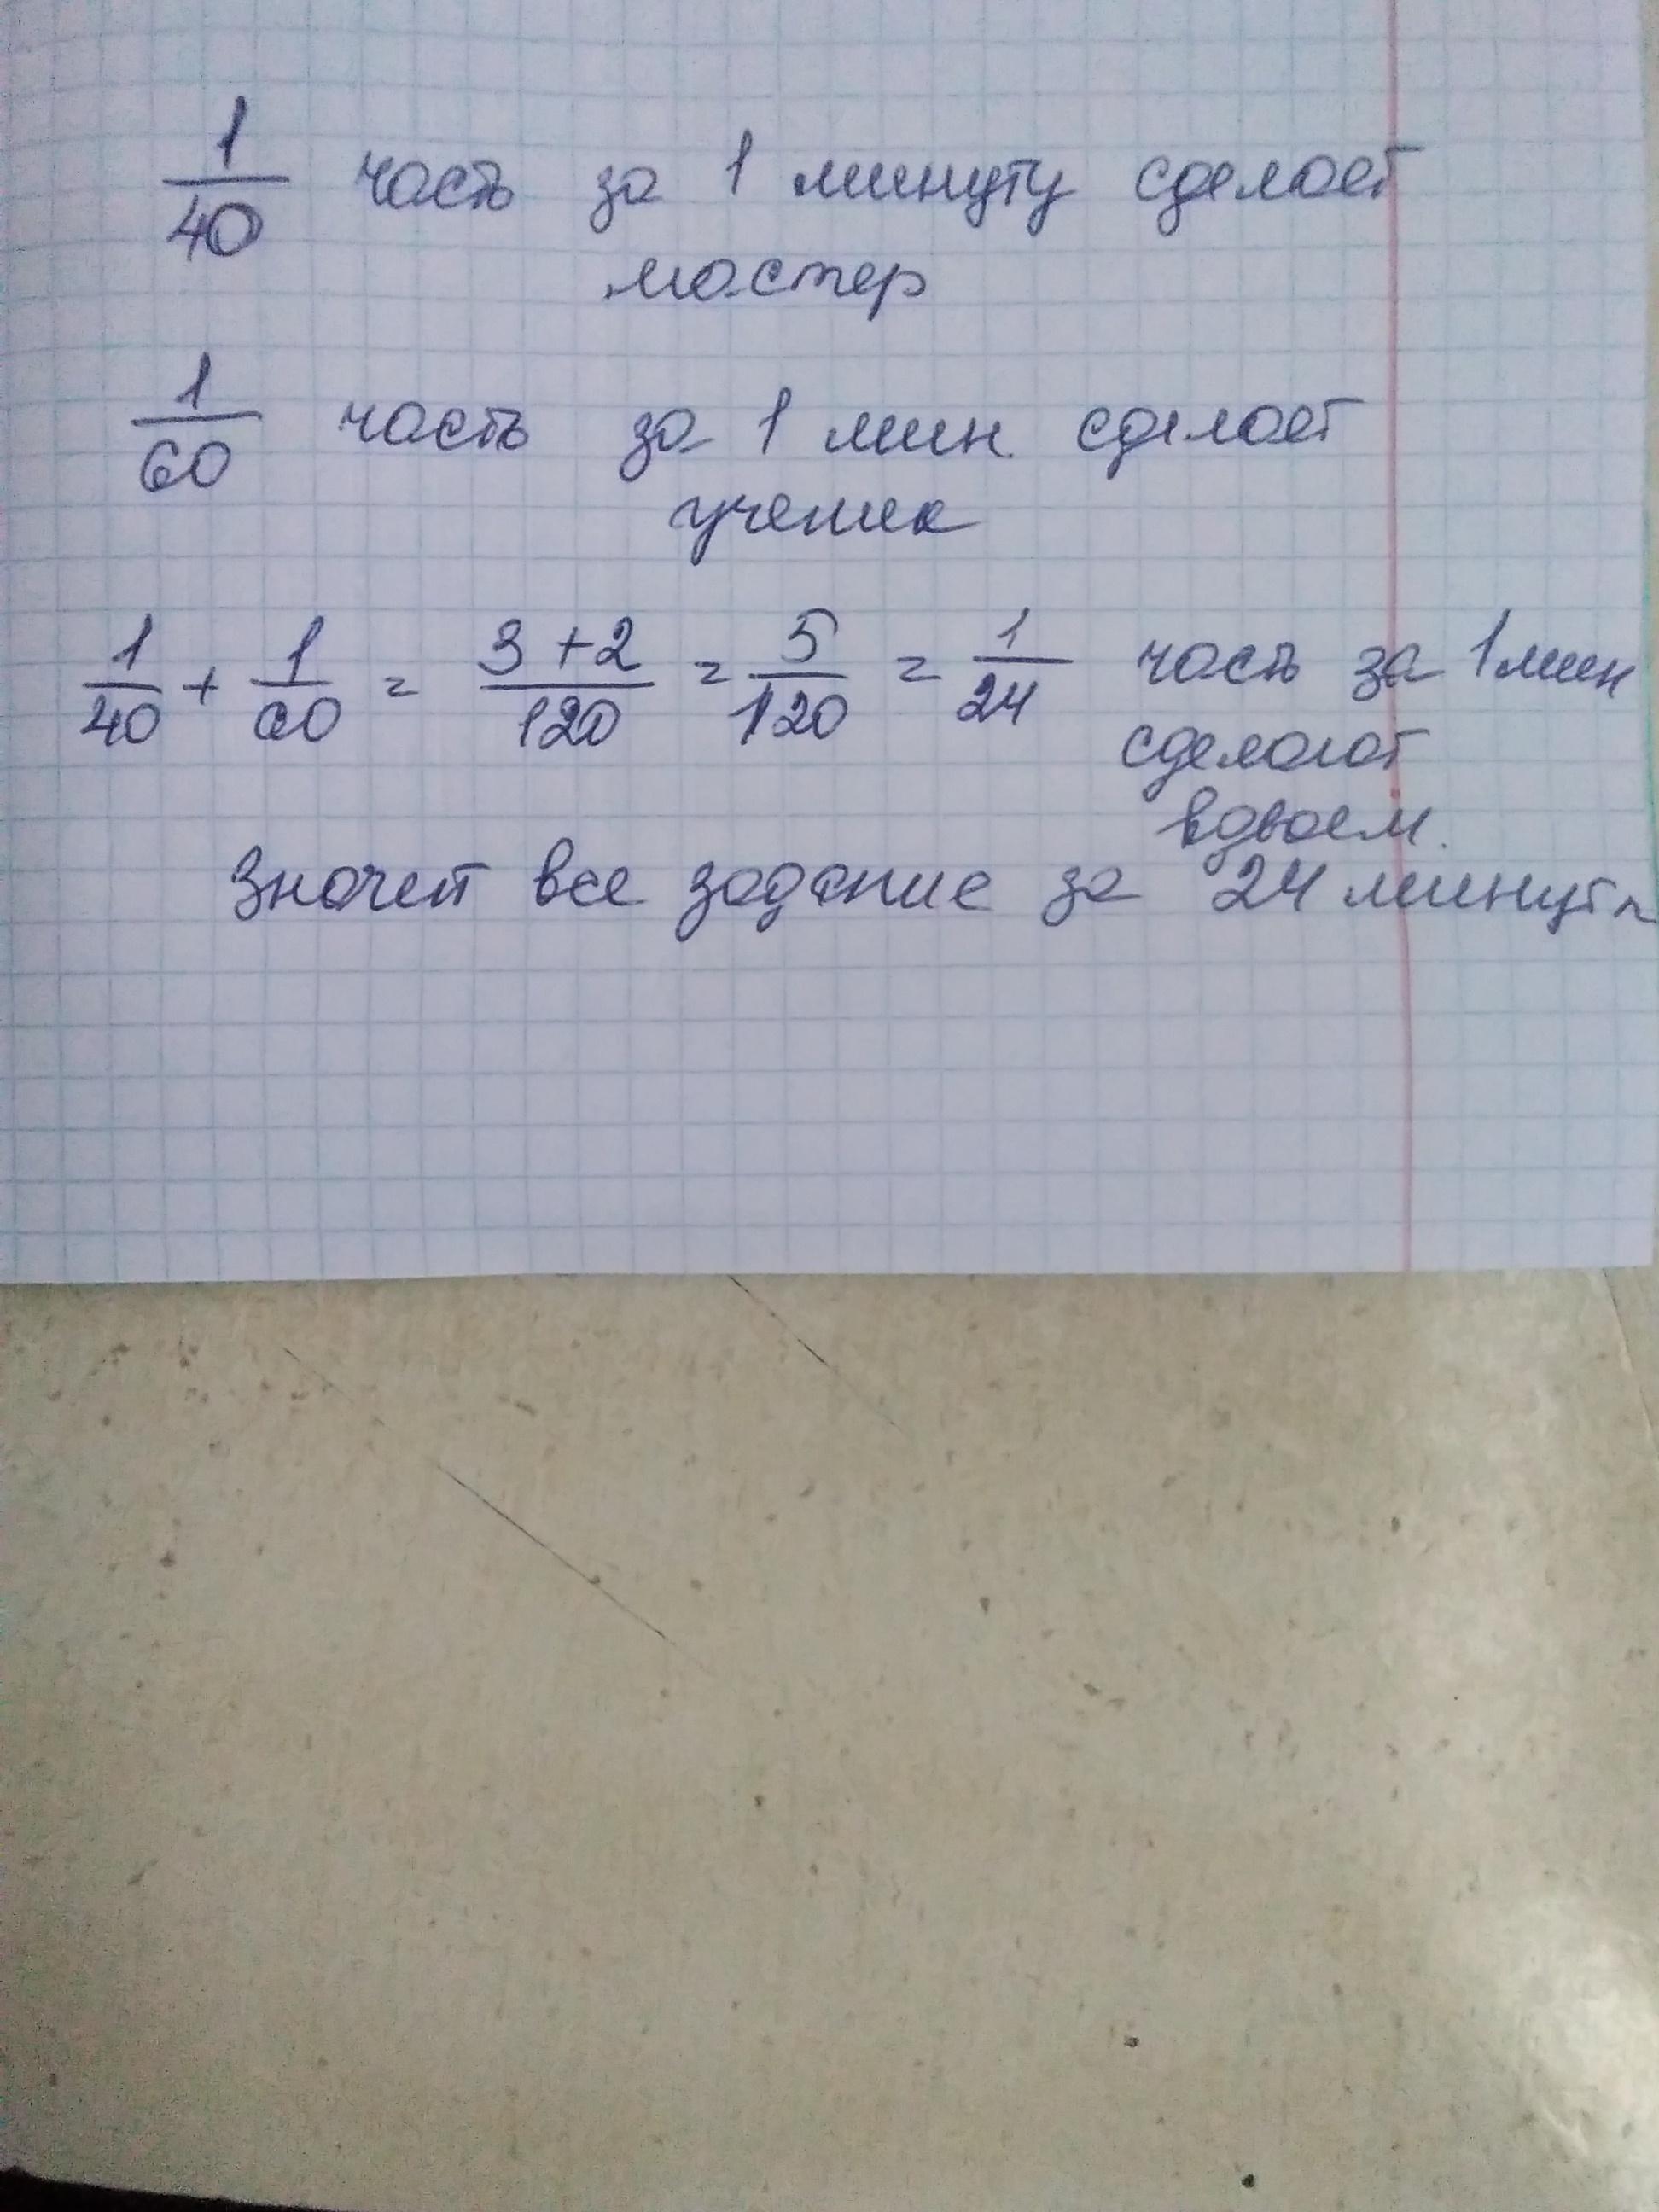 1/40 часть за 1 минуту сделает
мастер
1/60 часть за 1 мин. сделает
ученик
1/40 + 1/60 = 3+2/120 = 5/120 = 1/24 часть за 1 мин
сделают
вдвоем.
Значит все задание за 24 минуты